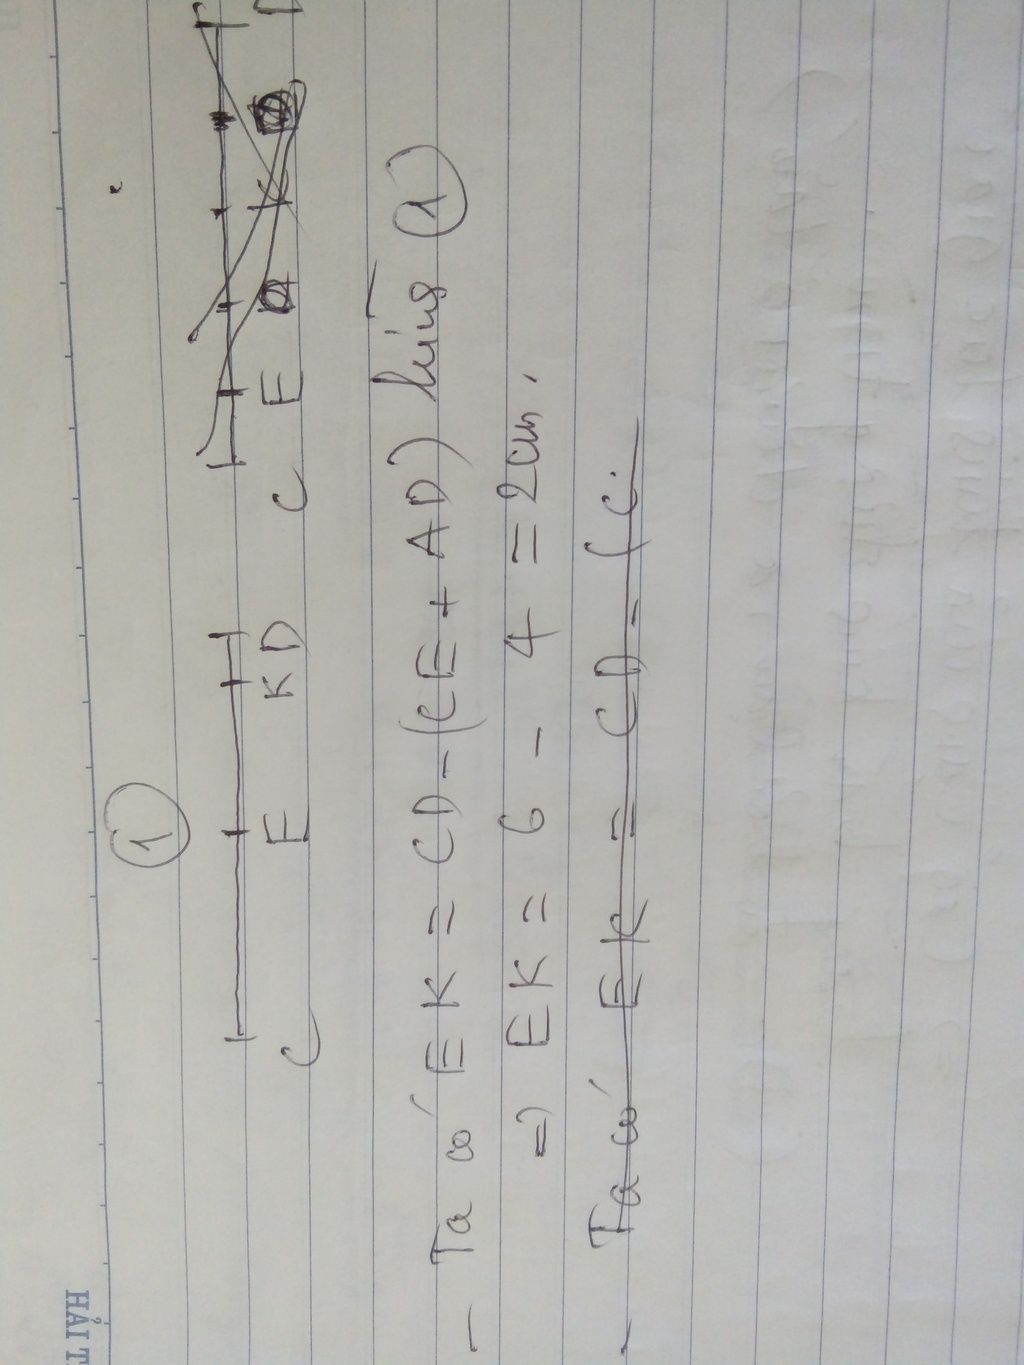 HẢI T
①
C E K D
C E K
- Ta có EK = CD - (CE + AD) hứng ①
⇒ EK = 6 - 4 = 2cm.
- Ta có EK = CD - (C.